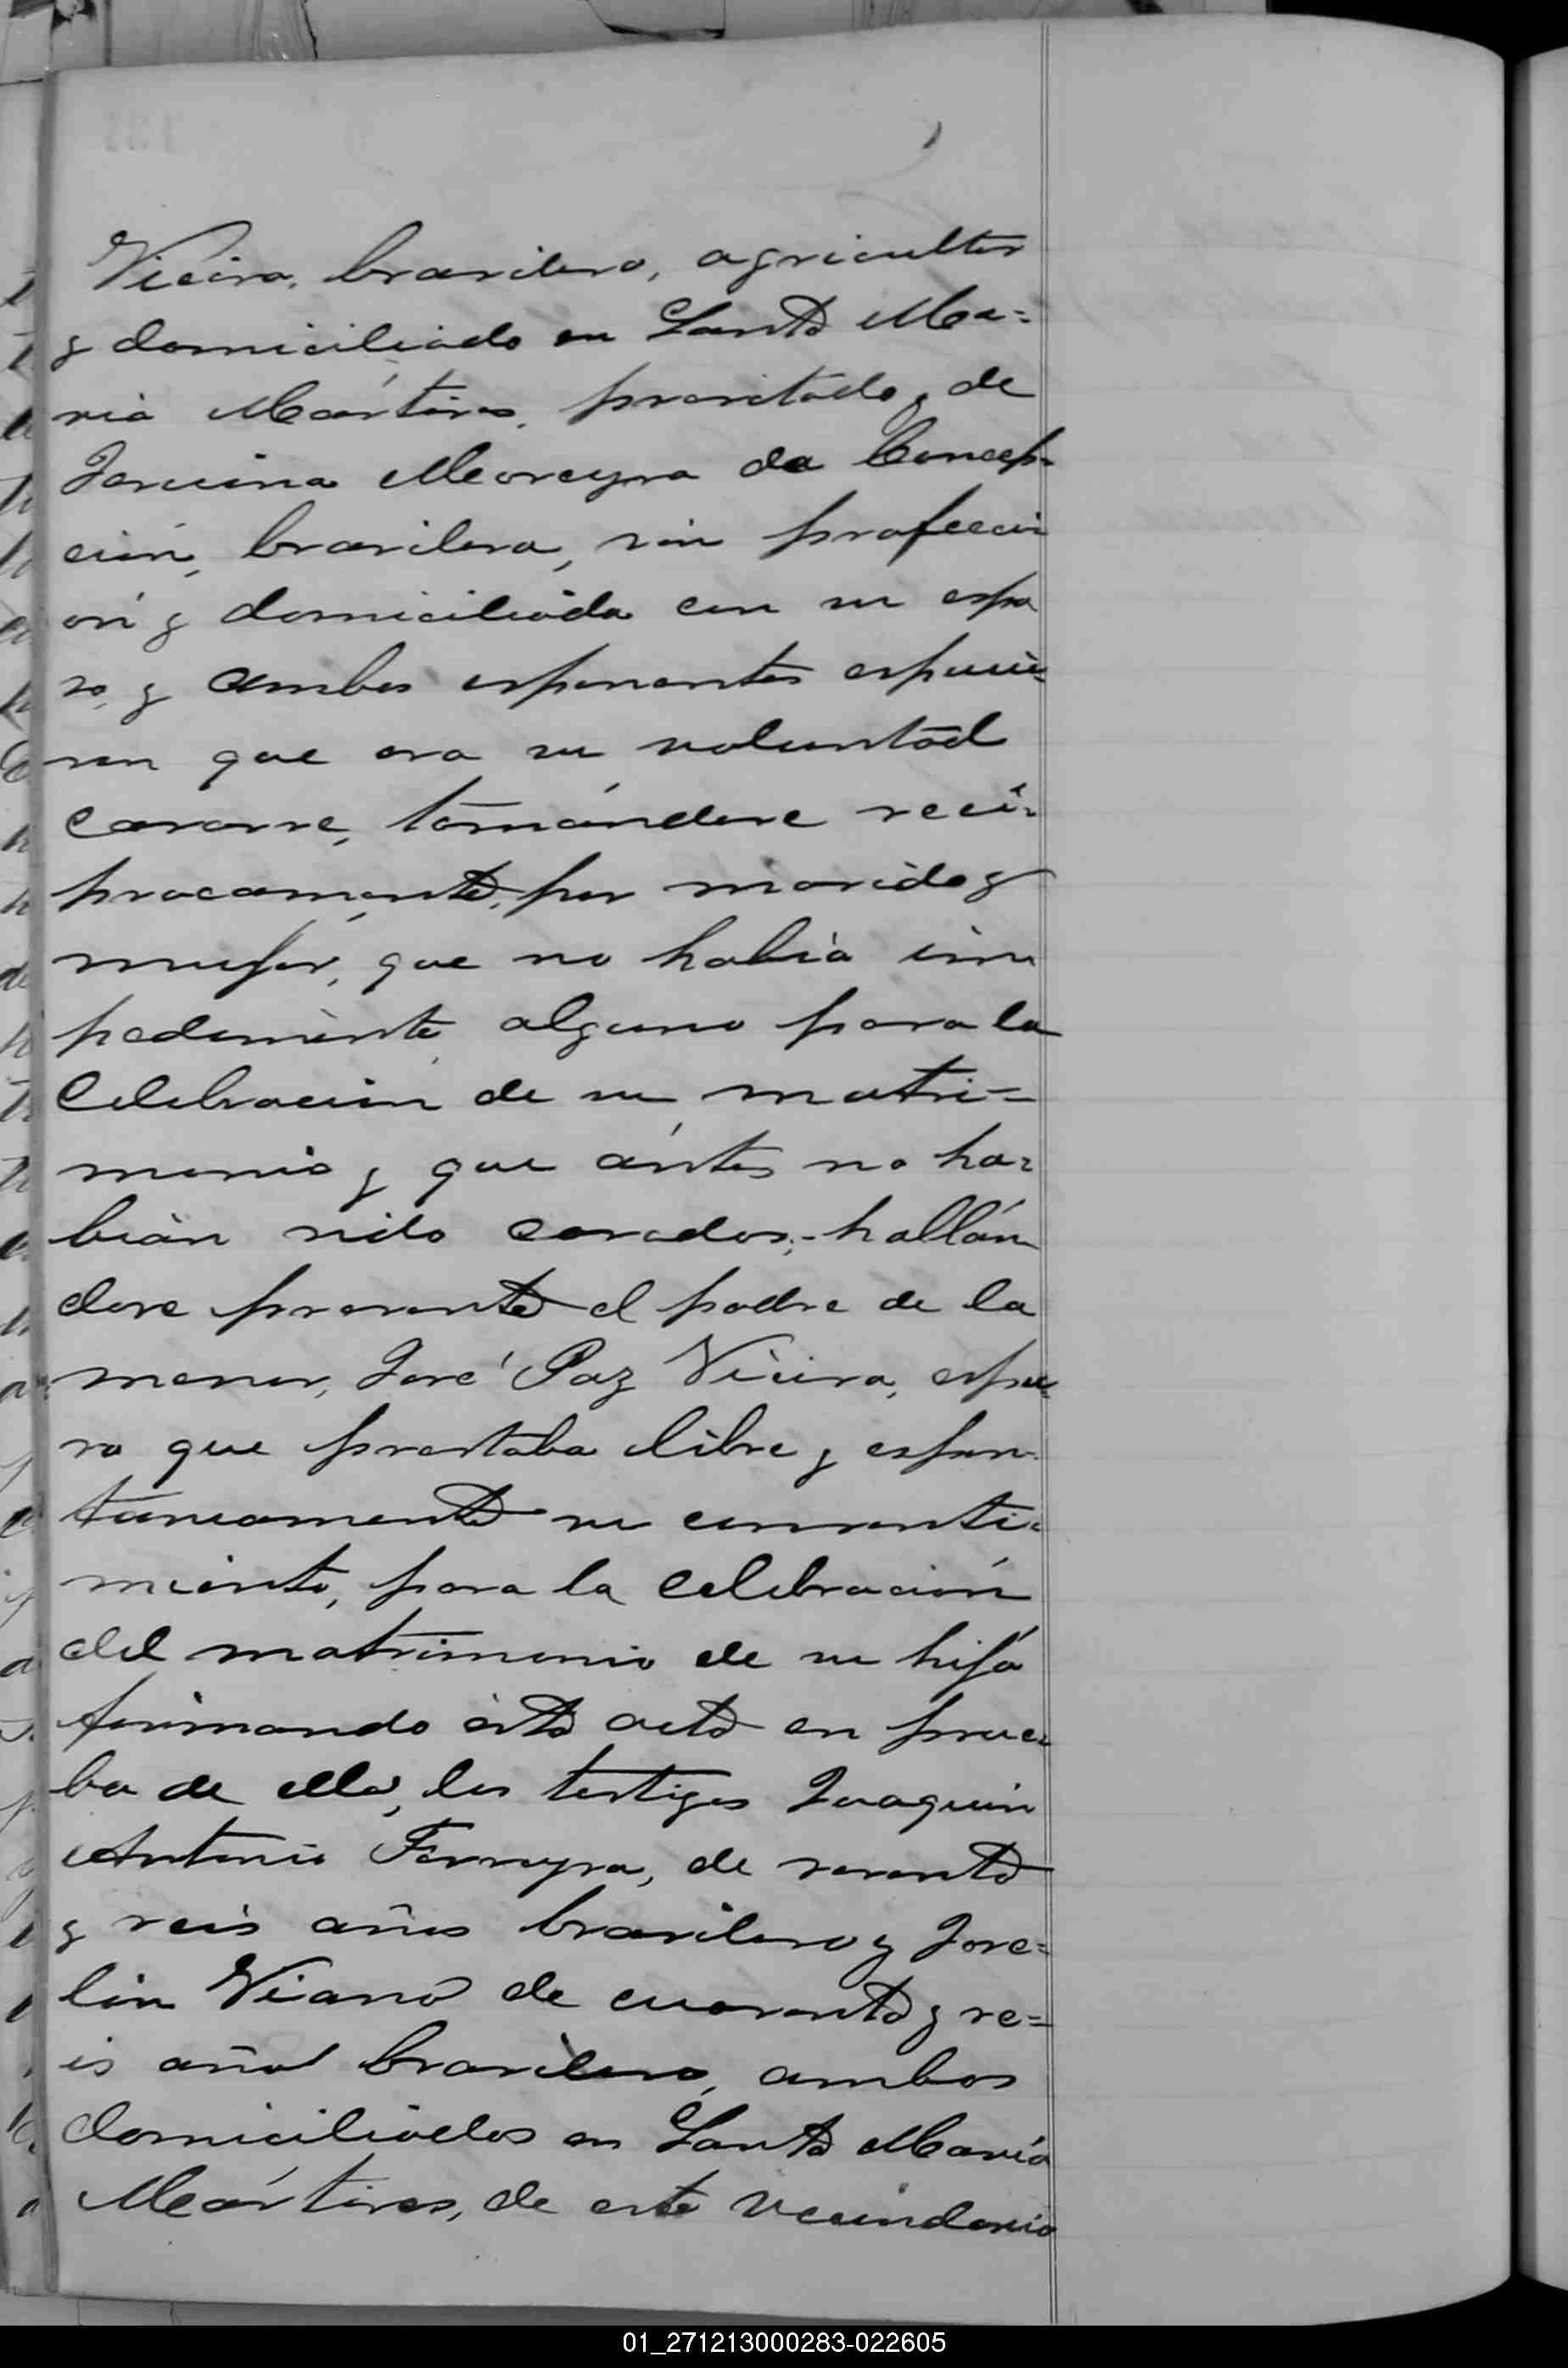 Vieira, brasilero, agricultor
y domiciliado en Santa Ma=
ria Mártires, presentado y de
Moreyra da Concep-
ción, brasilera, sin profecci
on y domiciliada con su espo
so, y ambos esponentes espusie-
ron que era su voluntad
casarse, tomándose recí-
procamente, por marido y
mujer, que no había im
pedimento alguno para la
celebración de su matri=
monio y que ántes no ha-
bían sido casados;- hallán
dose presente el padre de la
menor, José Paz Vieira, espu-
so que prestaba libre y espon-
táneamente su consenti-
miento, para la celebración
del matrimonio de su hija
firmando ésta acta en prue-
ba de ello, los testigos Joaquin
Antonio Ferreyra, de sesenta
y seis años brasilero y Jose=
lin Viana de cuarenta y se=
is años brasilero, ambos
domiciliados en Santa María
Mártires, de este vecindario
01_271213000283-022605